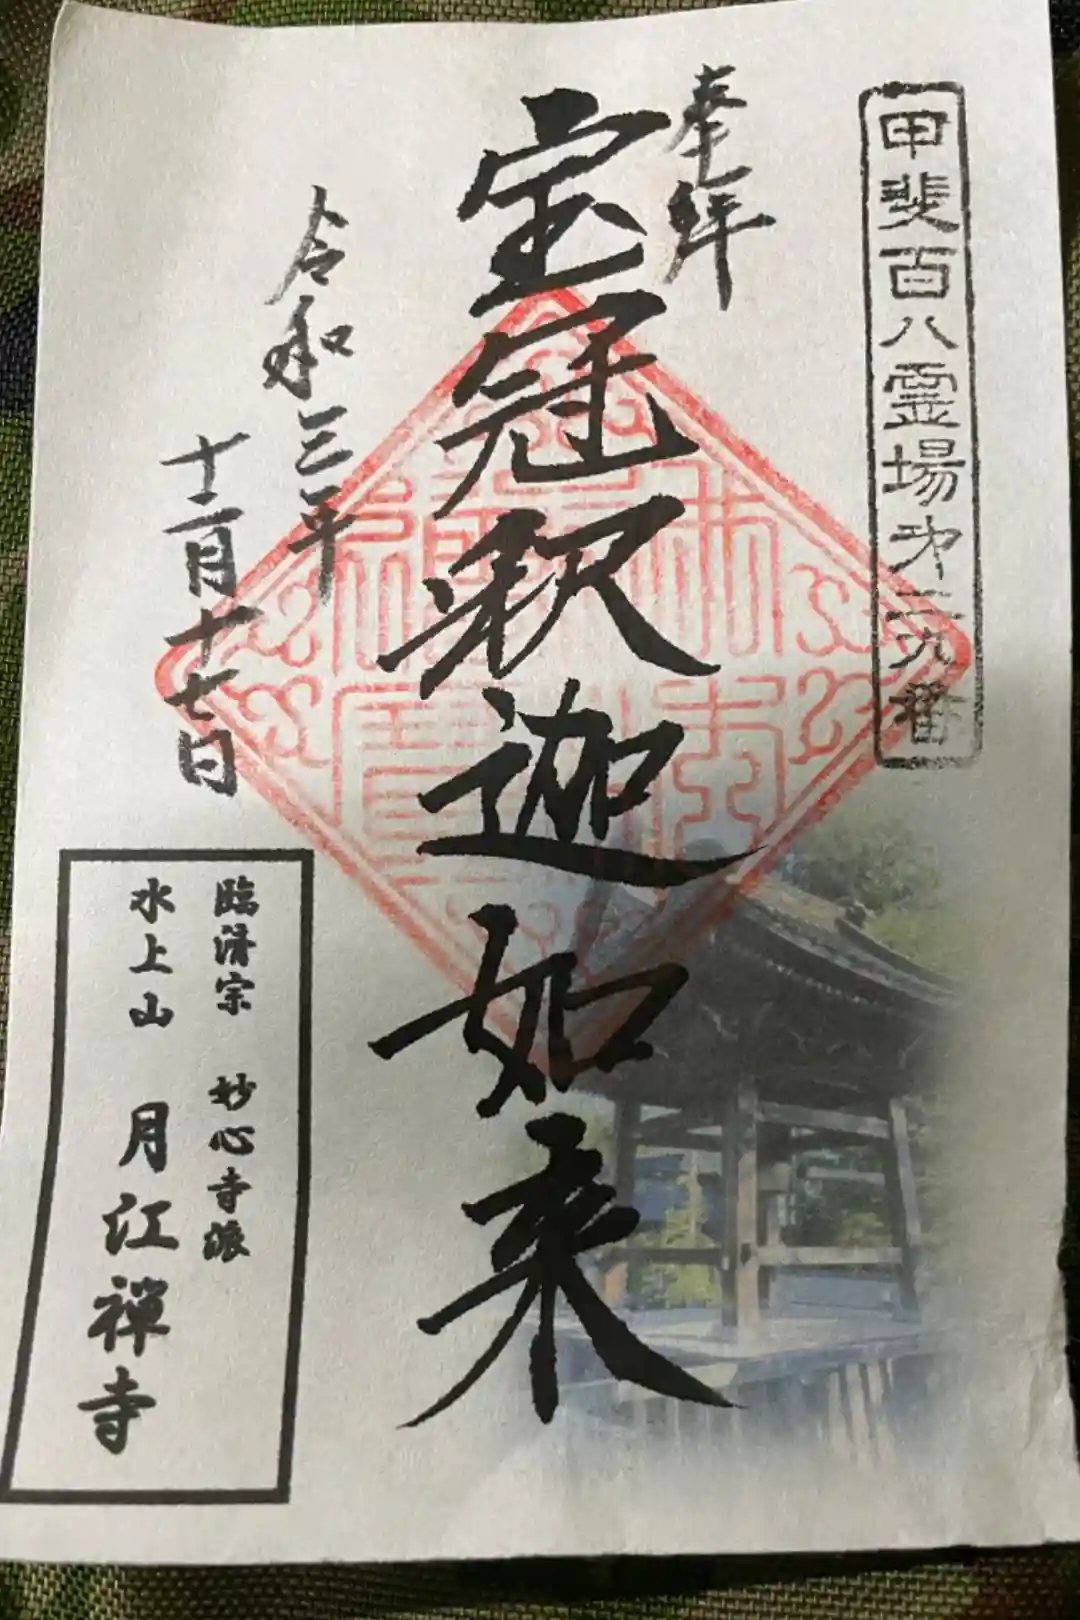 甲斐百八霊場第二九番
奉拝
宝冠釈迦如来
令和三年
十二月十七日
臨済宗 妙心寺派
水上山 月江禅寺